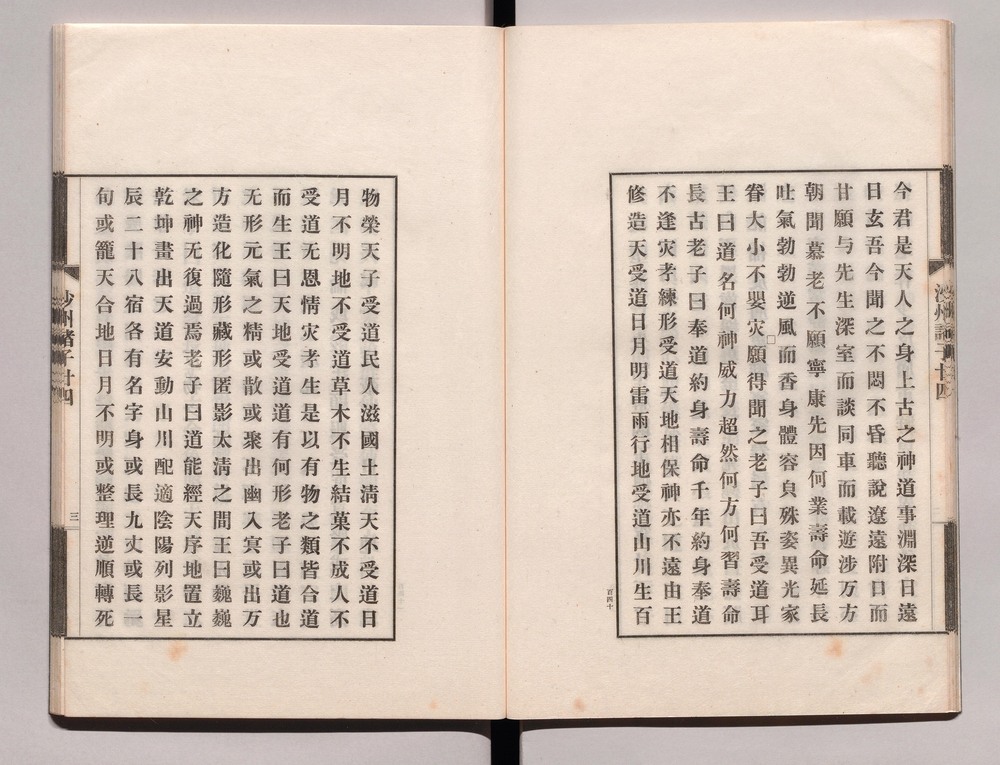 今君是天人之身上古之神道事淵深日遠
日玄吾今聞之不悶不昏聽說遼遠附口而
甘願与先生深室而談同車而載遊涉万方
朝聞慕老不願寧康先因何業壽命延長
吐氣勃勃逆風而香身體容㒵殊姿異光家
眷大小不嬰灾□願得聞之老子曰吾受道耳
王曰道名何神威力超然何方何習壽命
長古老子曰奉道約身壽命千年約身奉道
不逢灾孝練形受道天地相保神亦不遠由王
修造天受道日月明雷雨行地受道山川生百
物榮天子受道民人滋國土清天不受道日
月不明地不受道草木不生結菓不成人不
受道无恩情灾孝生是以有物之類皆合道
而生王曰天地受道道有何形老子曰道也
无形元氣之精或散或聚出幽入㝠或出万
方造化隨形藏形匿影太清之間王曰巍巍
之神无復過焉老子曰道能經天序地置立
乾坤畫出天道安動山川配適陰陽列影星
辰二十八宿各有名字身或長九丈或長一
旬或籠天合地日月不明或整理逆順轉死
沙州諸子廿四
三
沙州諸子廿四
百四十